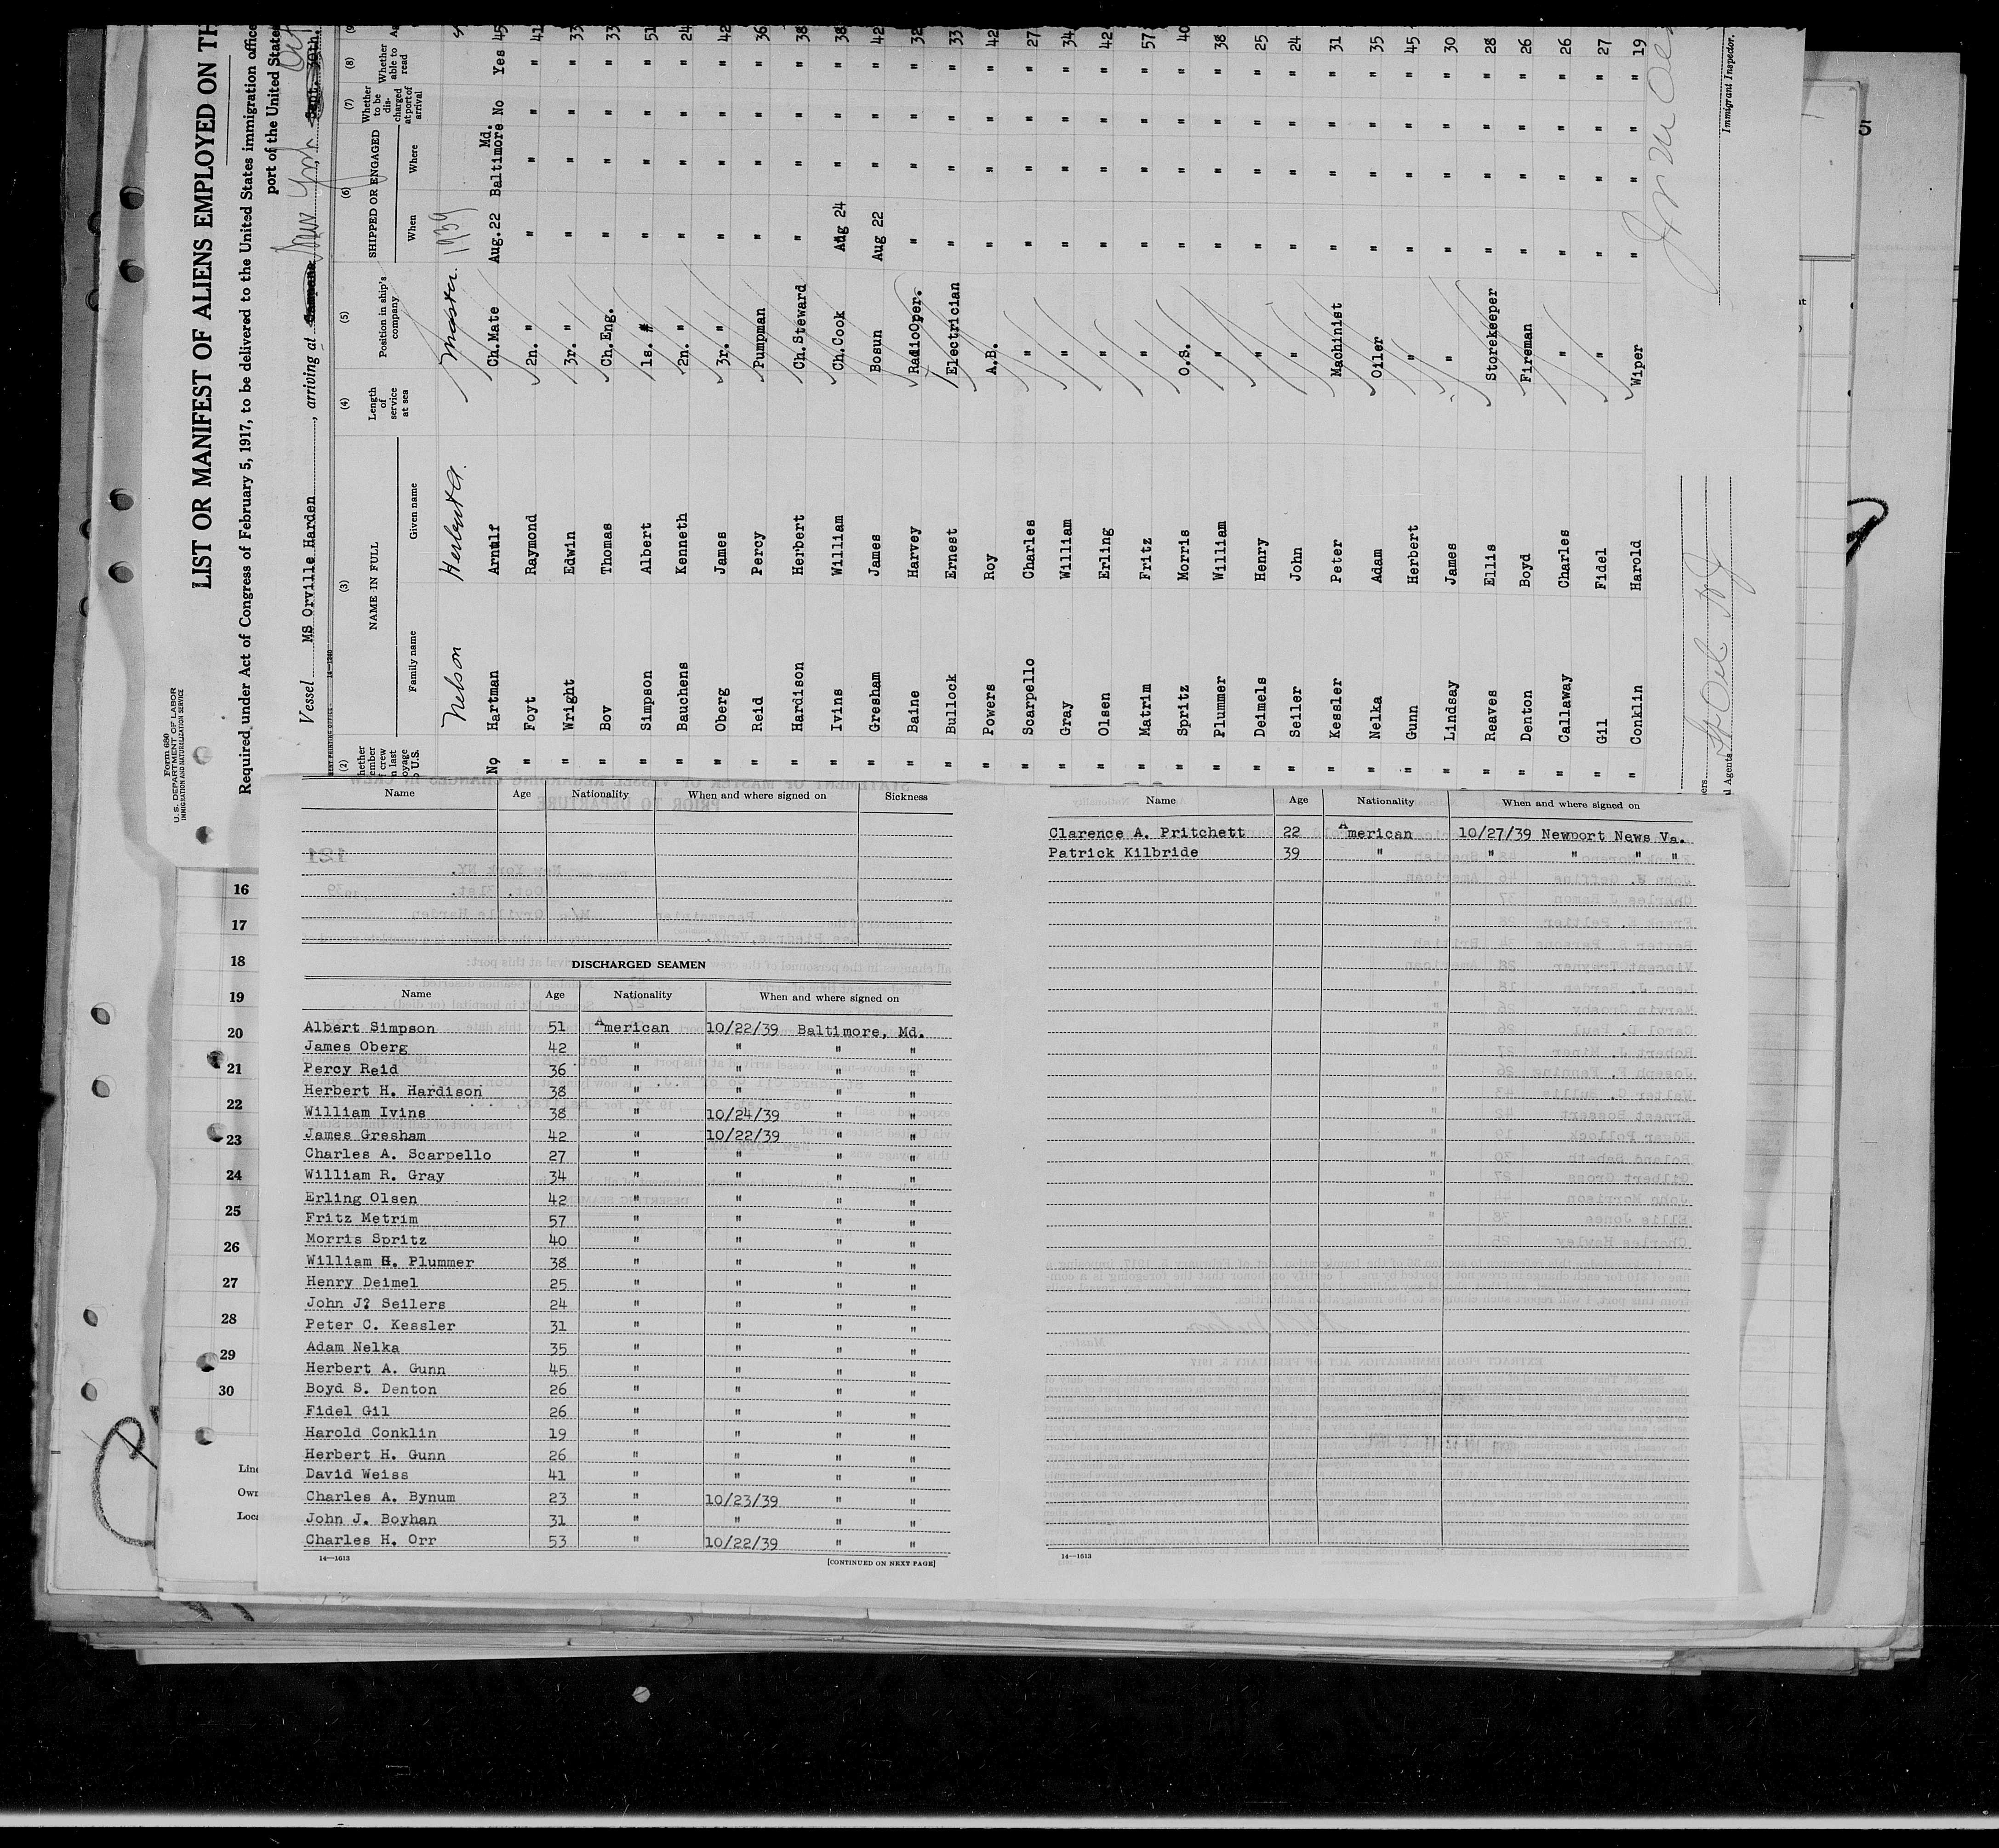 LIST OR MANIFEST OF ALIENS EMPLOYED ON TH
Required under Act of Congress of February 5, 1917, to be delivered to the United States immigration office
port of the United State
Form 680
U. S. DEPARTMENT OF LABOR
IMMIGRATION AND NATURALIZATION SERVICE
Vessel MS Orville Harden, arriving at New York
14—1240
(2) (3) (4) (5) (6) (7) (8)
NAME IN FULL
Family name Given name
Length of service at sea
Position in ship's company
SHIPPED OR ENGAGED
When Where
Whether to be discharged at port of arrival
Whether able to read
Nelson Herbert A. Master. 1939
No Hartman Arnulf Ch.Mate Aug.22 Baltimore Md. No Yes 45
" Foyt Raymond 2n. " " " " " 41
" Wright Edwin 3r. " " " " " 33
" Bov Thomas Ch.Eng. " " " " 33
" Simpson Albert 1s. " " " " " 51
" Bauchens Kenneth 2n. " " " " " 24
" Oberg James 3r. " " " " " 42
" Reid Percy Pumpman " " " " 36
" Hardison Herbert Ch.Steward " " " " 38
" Ivins William Ch.Cook Aug 24 " " " 38
" Gresham James Bosun Aug 22 " " " 42
" Baine Harvey RadioOper. " " " " 32
" Bullock Ernest Electrician " " " " 33
" Powers Roy A.B. " " " " 42
" Scarpello Charles " " " " " 27
" Gray William " " " " " 34
" Olsen Erling " " " " " 42
" Matrim Fritz " " " " " 57
" Spritz Morris O.S. " " " " 40
" Plummer William " " " " " 38
" Deimels Henry " " " " " 25
" Seiler John " " " " " 24
" Kessler Peter Machinist " " " " 31
" Nelka Adam Oiler " " " " 35
" Gunn Herbert " " " " " 45
" Lindsay James " " " " " 30
" Reaves Ellis Storekeeper " " " " 28
" Denton Boyd Fireman " " " " 26
" Callaway Charles " " " " " 26
" Gil Fidel " " " " " 27
" Conklin Harold Wiper " " " " 19
Immigrant Inspector.
St Oil NJ
Name Age Nationality When and where signed on Sickness
DISCHARGED SEAMEN
Name Age Nationality When and where signed on
Albert Simpson 51 American 10/22/39 Baltimore, Md.
James Oberg 42 " " " "
Percy Reid 36 " " " "
Herbert H. Hardison 38 " " " "
William Ivins 38 " 10/24/39 " "
James Gresham 42 " 10/22/39 " "
Charles A. Scarpello 27 " " " "
William R. Gray 34 " " " "
Erling Olsen 42 " " " "
Fritz Metrim 57 " " " "
Morris Spritz 40 " " " "
William H. Plummer 38 " " " "
Henry Deimel 25 " " " "
John J? Seilers 24 " " " "
Peter C. Kessler 31 " " " "
Adam Nelka 35 " " " "
Herbert A. Gunn 45 " " " "
Boyd S. Denton 26 " " " "
Fidel Gil 26 " " " "
Harold Conklin 19 " " " "
Herbert H. Gunn 26 " " " "
David Weiss 41 " " " "
Charles A. Bynum 23 " 10/23/39 " "
John J. Boyhan 31 " " " "
Charles H. Orr 53 " 10/22/39 " "
14—1613 [CONTINUED ON NEXT PAGE]
Name Age Nationality When and where signed on
Clarence A. Pritchett 22 American 10/27/39 Newport News Va.
Patrick Kilbride 39 " " " " "
14—1613
16
17
18
19
20
21
22
23
24
25
26
27
28
29
30